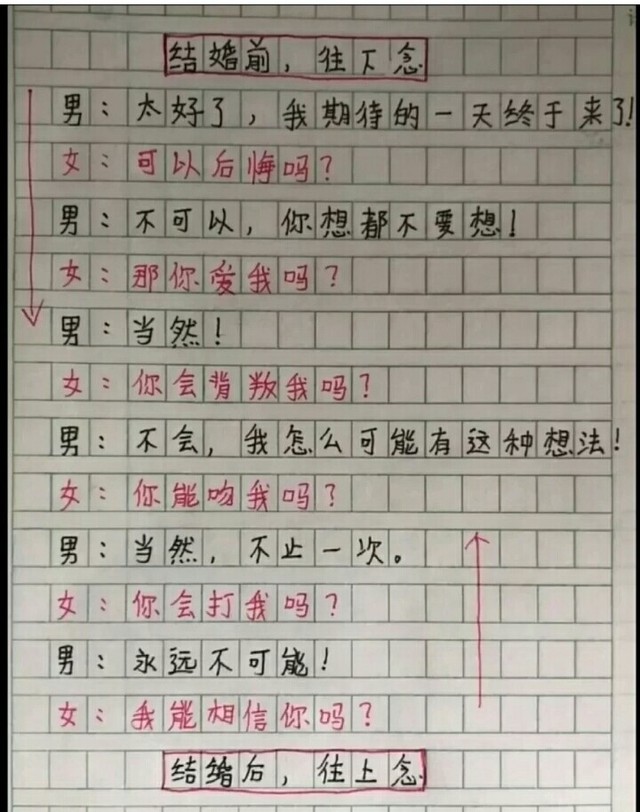 结婚前，往下念
男：太好了，我期待的一天终于来了！
女：可以后悔吗？
男：不可以，你想都不要想！
女：那你爱我吗？
男：当然！
女：你会背叛我吗？
男：不会，我怎么可能有这种想法！
女：你能吻我吗？
男：当然，不止一次。
女：你会打我吗？
男：永远不可能！
女：我能相信你吗？
结婚后，往上念